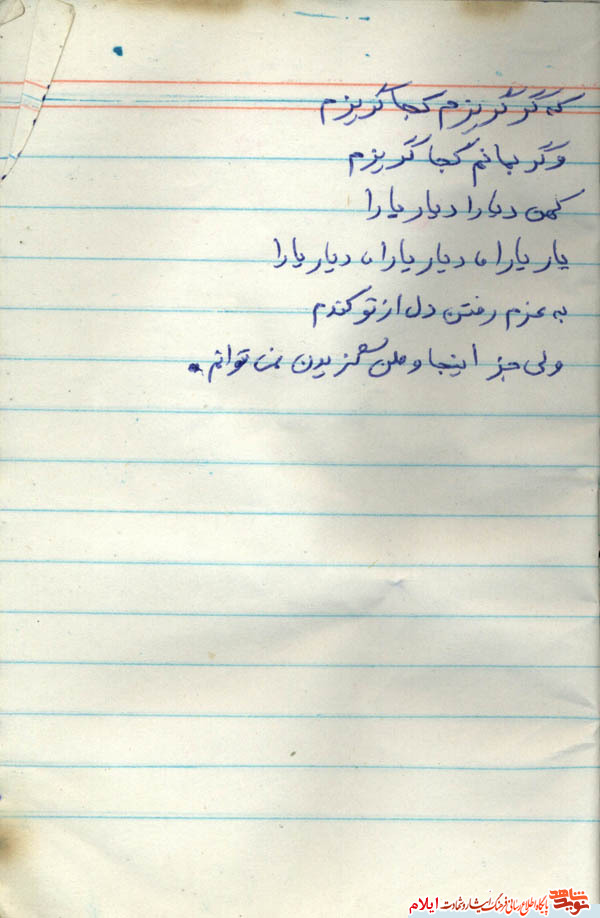 که گر گریزم کجا گریزم
وگر بمانم کجا گریزم
کهن دیارا دیار یارا
یار یاران دیار یاران دیار یارا
به عزم رفتن دل از تو کندم
ولی جز اینجا وطن گزیدن نمی توانم.
نوید شاهد پایگاه اطلاع رسانی فرهنگ ایثار و شهادت ایلام